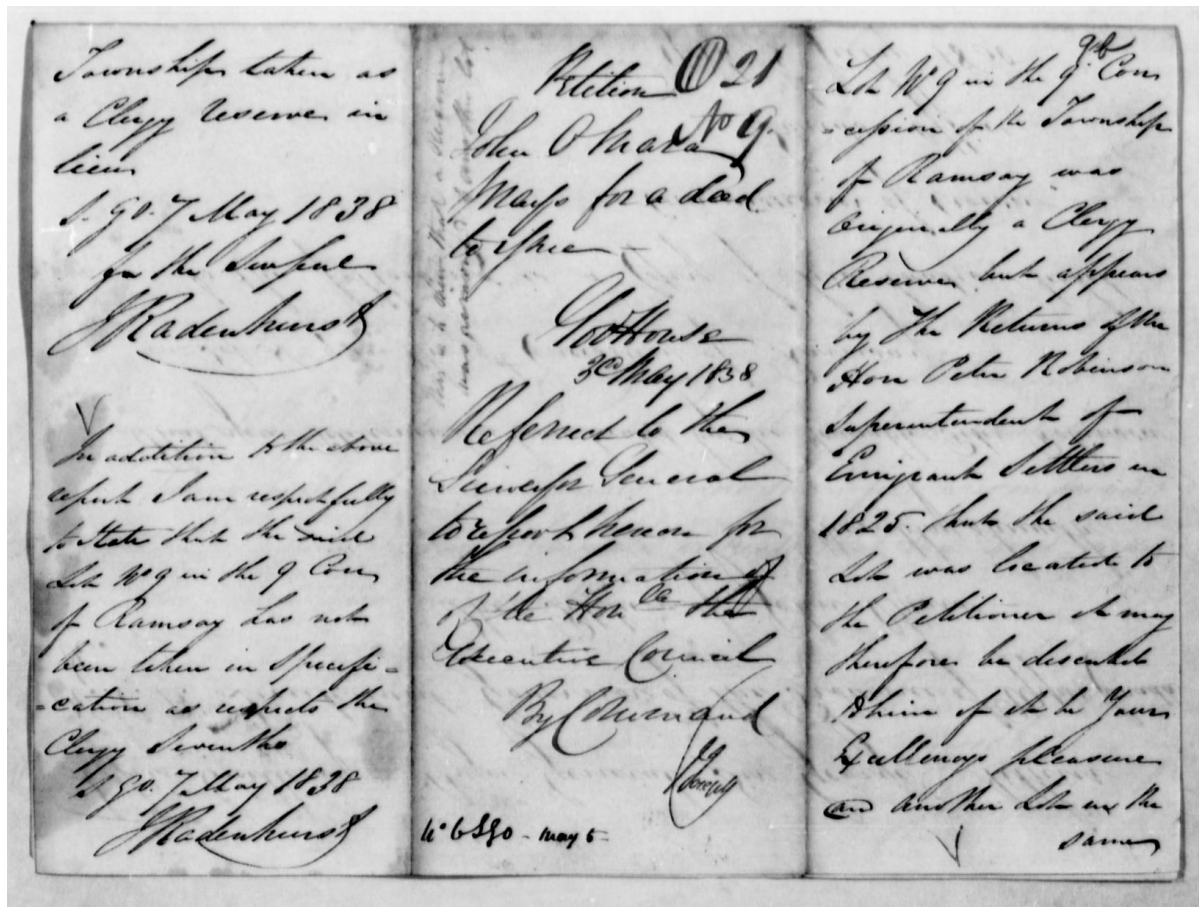 Township taken as
a Clergy reserve in
lieu
S. G. O. 7 May 1838
for the Survr Genl
J Radenhurst
In addition to the above
report I am respectfully
to state that the said
Lot No 9 in the 9 Con
of Ramsay has not
been taken in Specifi-
-cation as respects the
Clergy Sevenths
S. G. O. 7 May 1838
J Radenhurst
Petition 21
No 9.
John O Mara
Prays for a deed
to issue
Govt House
3d May 1838
Referred to the
Surveyor General
to report hereon for
the information of
of the Honble the
Executive Council
By Command
No 6 SGO - May 5
Lot No 9 in the 9th Con
-cession of the Township
of Ramsay was
originally a Clergy
Reserve but appears
by the Returns of the
Hon Peter Robinson
Superintendent of
Emigrant Settlers in
1825. that the said
Lot was located to
the Petitioner it may
therefore be described
to him if it be Your
Excellencys pleasure
and another Lot in the
same